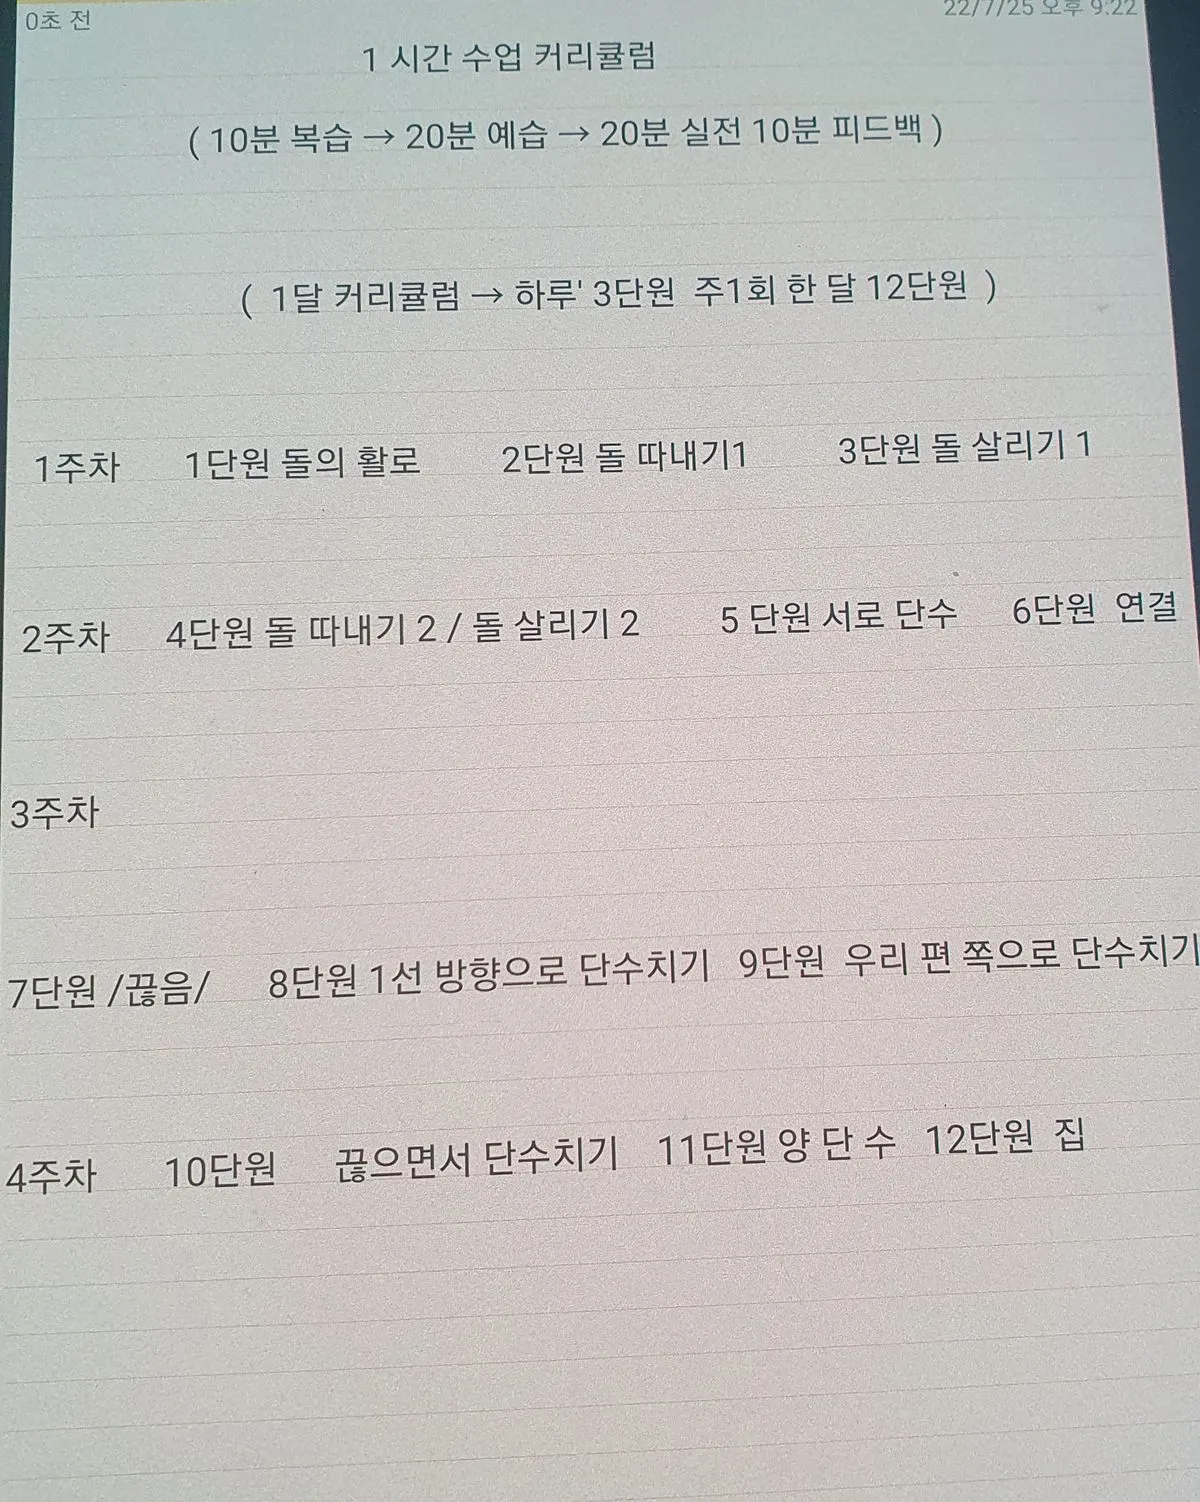 0초 전
22/7/25 오후 9:22
1 시간 수업 커리큘럼
( 10분 복습 → 20분 예습 → 20분 실전 10분 피드백 )
( 1달 커리큘럼 → 하루' 3단원 주1회 한 달 12단원 )
1주차 1단원 돌의 활로 2단원 돌 따내기1 3단원 돌 살리기 1
2주차 4단원 돌 따내기 2 / 돌 살리기 2 5 단원 서로 단수 6단원 연결
3주차
7단원 /끊음/ 8단원 1선 방향으로 단수치기 9단원 우리 편 쪽으로 단수치기
4주차 10단원 끊으면서 단수치기 11단원 양 단 수 12단원 집